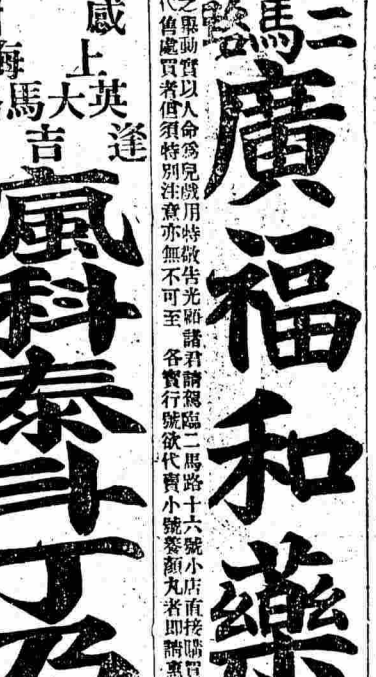 二馬路
廣福和藥
之舉動實以人命為兒戲用特敬告光顧諸君請親臨二馬路十六號小店直接購買
代售處買者但須特別注意亦無不可至 各寶行號欲代賣小號養顏丸者即請惠
英大馬
上海
逢吉
瘋科泰斗丁乃